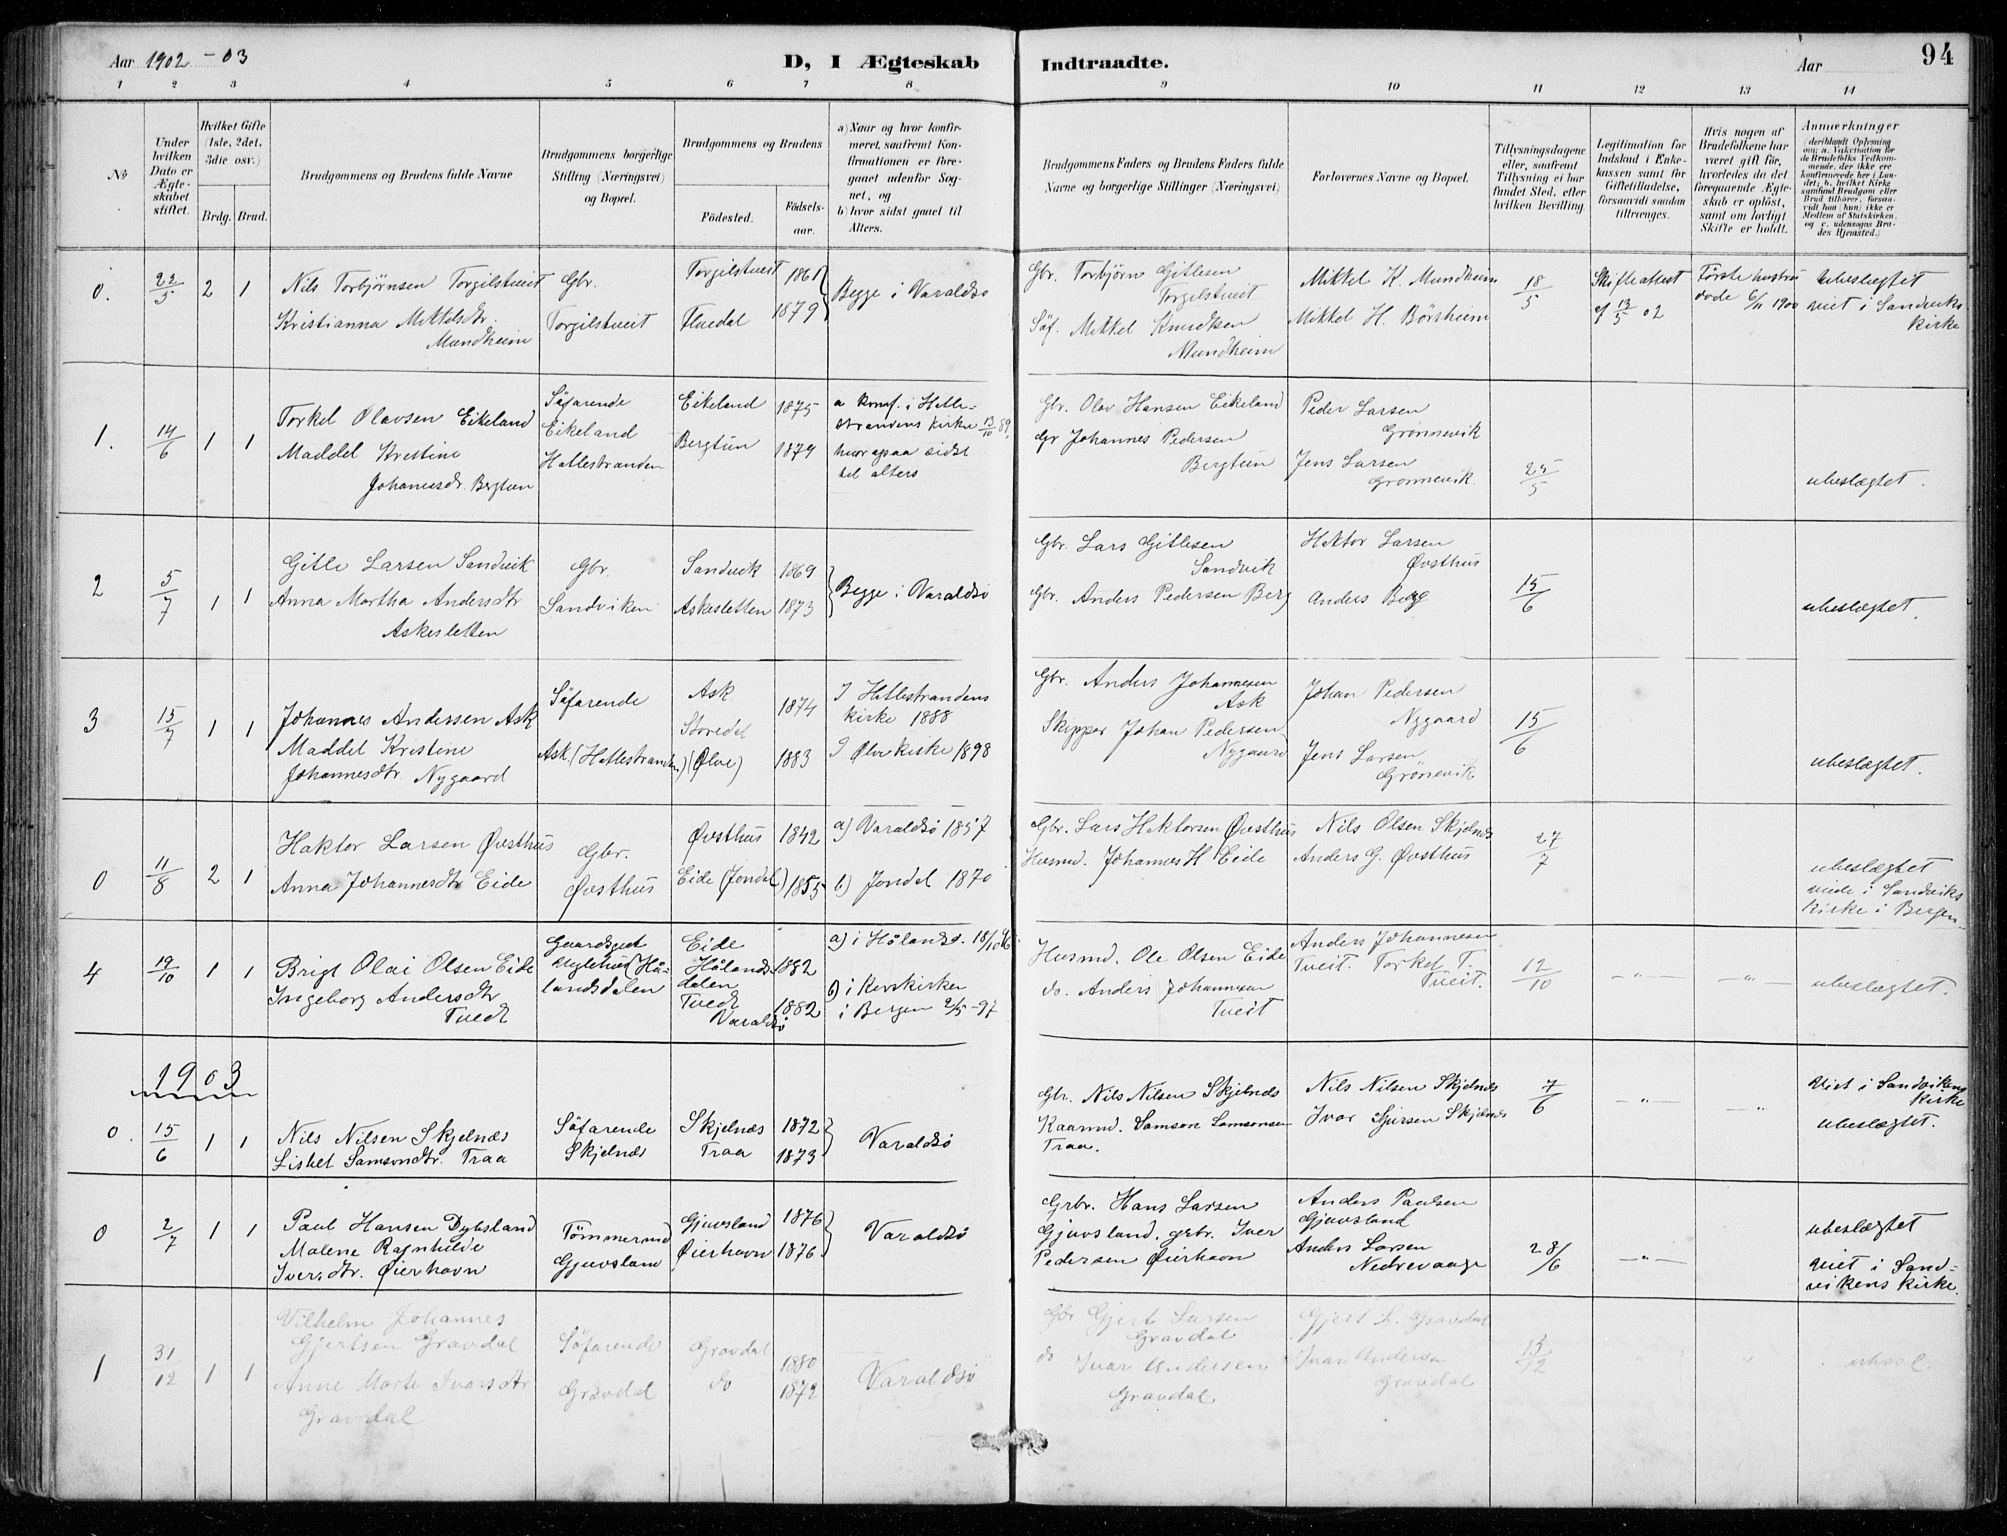 Aar 1902 - 03
D, I Ægteskab Indtraadte.
Aar
94
1 2 3 4 5 6 7 8 9 10 11 12 13 14
No
Under hvilken Dato er Ægteskabet stiftet.
Hvilket Gifte (1ste, 2det, 3die osv.)
Brdg. Brud.
Brudgommens og Brudens fulde Navne
Brudgommens borgerlige Stilling (Næringsvei) og Bopæl.
Brudgommens og Brudens
Födested.
Födsels-aar.
a) Naar og hvor konfirmeret, saafremt Konfirmationen er foregaaet udenfor Sognet, og
b) hvor sidst gaaet til Alters.
Brudgommens Faders og Brudens Faders fulde Navne og borgerlige Stillinger (Næringsvei)
Forlovernes Navne og Bopæl.
Tillysningsdagene eller, saafremt Tillysning ei har fundet Sted, efter hvilken Bevilling.
Legitimation for Indskud i Enkekassen samt for Giftetilladelse, forsaavidt saadan tiltrænges.
Hvis nogen af Brudefolkene har været gift för, hvorledes da det foregaaende Ægteskab er oplöst, samt om lovligt Skifte er holdt.
Anmærkninger (deriblandt Oplysning om: a. Vakcination for de Brudefolks Vedkommende, der ikke ere konfirmerede her i Landet; b. hvilket Kirkesamfund Brudgom eller Brud tilhörer, forsaavidt han (hun) ikke er Medlem af Statskirken, og c. udensogns Brudes Hjemsted.)
0. 22/5 2 1
Nils Torbjørnsen Torgilstueit
Kristianna Mikkelsdtr.
Mundheim
Gbr.
Torgilstueit
Torgilstueit 1861
Fluedal 1879
Begge i Varaldsø
Gbr. Torbjörn Gitlesen
Torgilstueit
Söf. Mikkel Knudsen
Mundheim
Mikkel K. Mundheim
Mikkel H. Börsheim
18/5
Skifteattest
af 13/5 02
Første hustru
döde 6/11 1900
ubeslægtet
viet i Sandviks
kirke
1. 14/6 1 1
Torkel Olavsen Eikeland
Maddel Kristine
Johannesdr. Bergtun
Söfarende
Eikeland
Hatlestranden
Eikeland 1875
Bergtun 1879
a konf. i Hatle-
strandens kirke 13/10 89,
hvor ogsaa sidst
til alters
Gbr. Olav Hansen Eikeland
Gbr Johannes Pedersen
Bergtun
Peder Larsen
Grønnevik
Jens Larsen
Grønnevik.
25/5
ubeslægtet.
2 5/7 1 1
Gitle Larsen Sandvik
Anna Martha Andersdtr
Askesletten
Gbr.
Sandviken
Sandvik 1869
Askesletten 1873
Begge i Varaldsø
Gbr. Lars Gitlesen
Sandvik
Gbr. Anders Pedersen Berg
Haktor Larsen
Øvsthus
Anders Berg
15/6
ubeslægtet.
3 15/7 1 1
Johannes Andersen Ask
Maddel Kristine
Johannesdtr Nygaard
Söfarende
Ask. (Hatlestranden)
Ask 1874
(Ølve) 1883
I Hatlestrandens
kirke 1888
I Ølve kirke 1898
Gbr. Anders Johannesen
Ask
Skipper Johan Pedersen
Nygaard
Johan Pedersen
Nygaard
Jens Larsen
Grönnevik
15/6
ubeslægtet.
0 11/8 2 1
Haktor Larsen Øvsthus
Anna Johannesdtr Eide
Gbr.
Øvsthus
Øvsthus 1842
Eide (Jondal) 1855
a) Varaldsö 1857
b) Jondal 1870
Gbr. Lars Haktorsen Øvsthus
Husmd. Johannes H Eide
Nils Olsen Skjelnes
Anders G. Øvsthus
27/7
ubeslægtet
viede i Sandviks
kirke i Bergen
4 19/10 1 1
Brigt Olai Olsen Eide
Ingeborg Andersdtr
Tuedt
Gaardsgut
landsdalen
Eide
Hålands-
dalen 1882
Tuedt
Varaldsø 1882
a) i Hålandsd. 18/10 96
b) i Korskirken
i Bergen 2/5 -97
Husmd. Ole Olsen Eide
do. Anders Johannesen
Tueit
Anders Johannesen
Tueit. Torkel T.
Tueit.
12/10
-"- -"-
ubeslægtet.
1903
0. 15/6 1 1
Nils Nilsen Skjelnæs
Lisbet Samsonsdtr. Traa
Söfarende
Skjelnæs
Skjelnæs 1872
Traa 1873
Varaldsö
Gbr. Nils Nilsen Skjelnæs
Kaarmd. Samson Samsonsen
Traa.
Nils Nilsen Skjelnæs
Ivar Sjursen Skjelnæs
7/6
-"- -"-
Viet i Sandvikens
kirke
ubeslægtet.
0 2/7 1 1
Paul Hansen Dybsland
Malene Ragnhilde
Iversdtr. Øierhavn
Tömmermd
Gjuvsland
Gjuvsland 1876
Øierhavn 1876
Varaldsö
Grbr. Hans Larsen
Gjuvsland. grbr. Iver
Pedersen Øierhavn
Anders Paulsen
Gjuvsland
Anders Larsen
Nedrevaage
28/6
-"-
ubeslægtet
viet i Sand-
vikens kirke.
1 31/12 1 1
Vilhelm Johannes
Gjertsen Gravdal
Anne Marte Ivarsdtr
Gravdal
Söfarende
Gravdal
Gravdal 1880
do 1872
Varaldsö
Gbr Gjert Larsen
Gravdal
do Ivar Andersen
Gravdal
Gjert L. Gravdal
Ivar Andersen
Gravdal
13/12
"
ubesl.